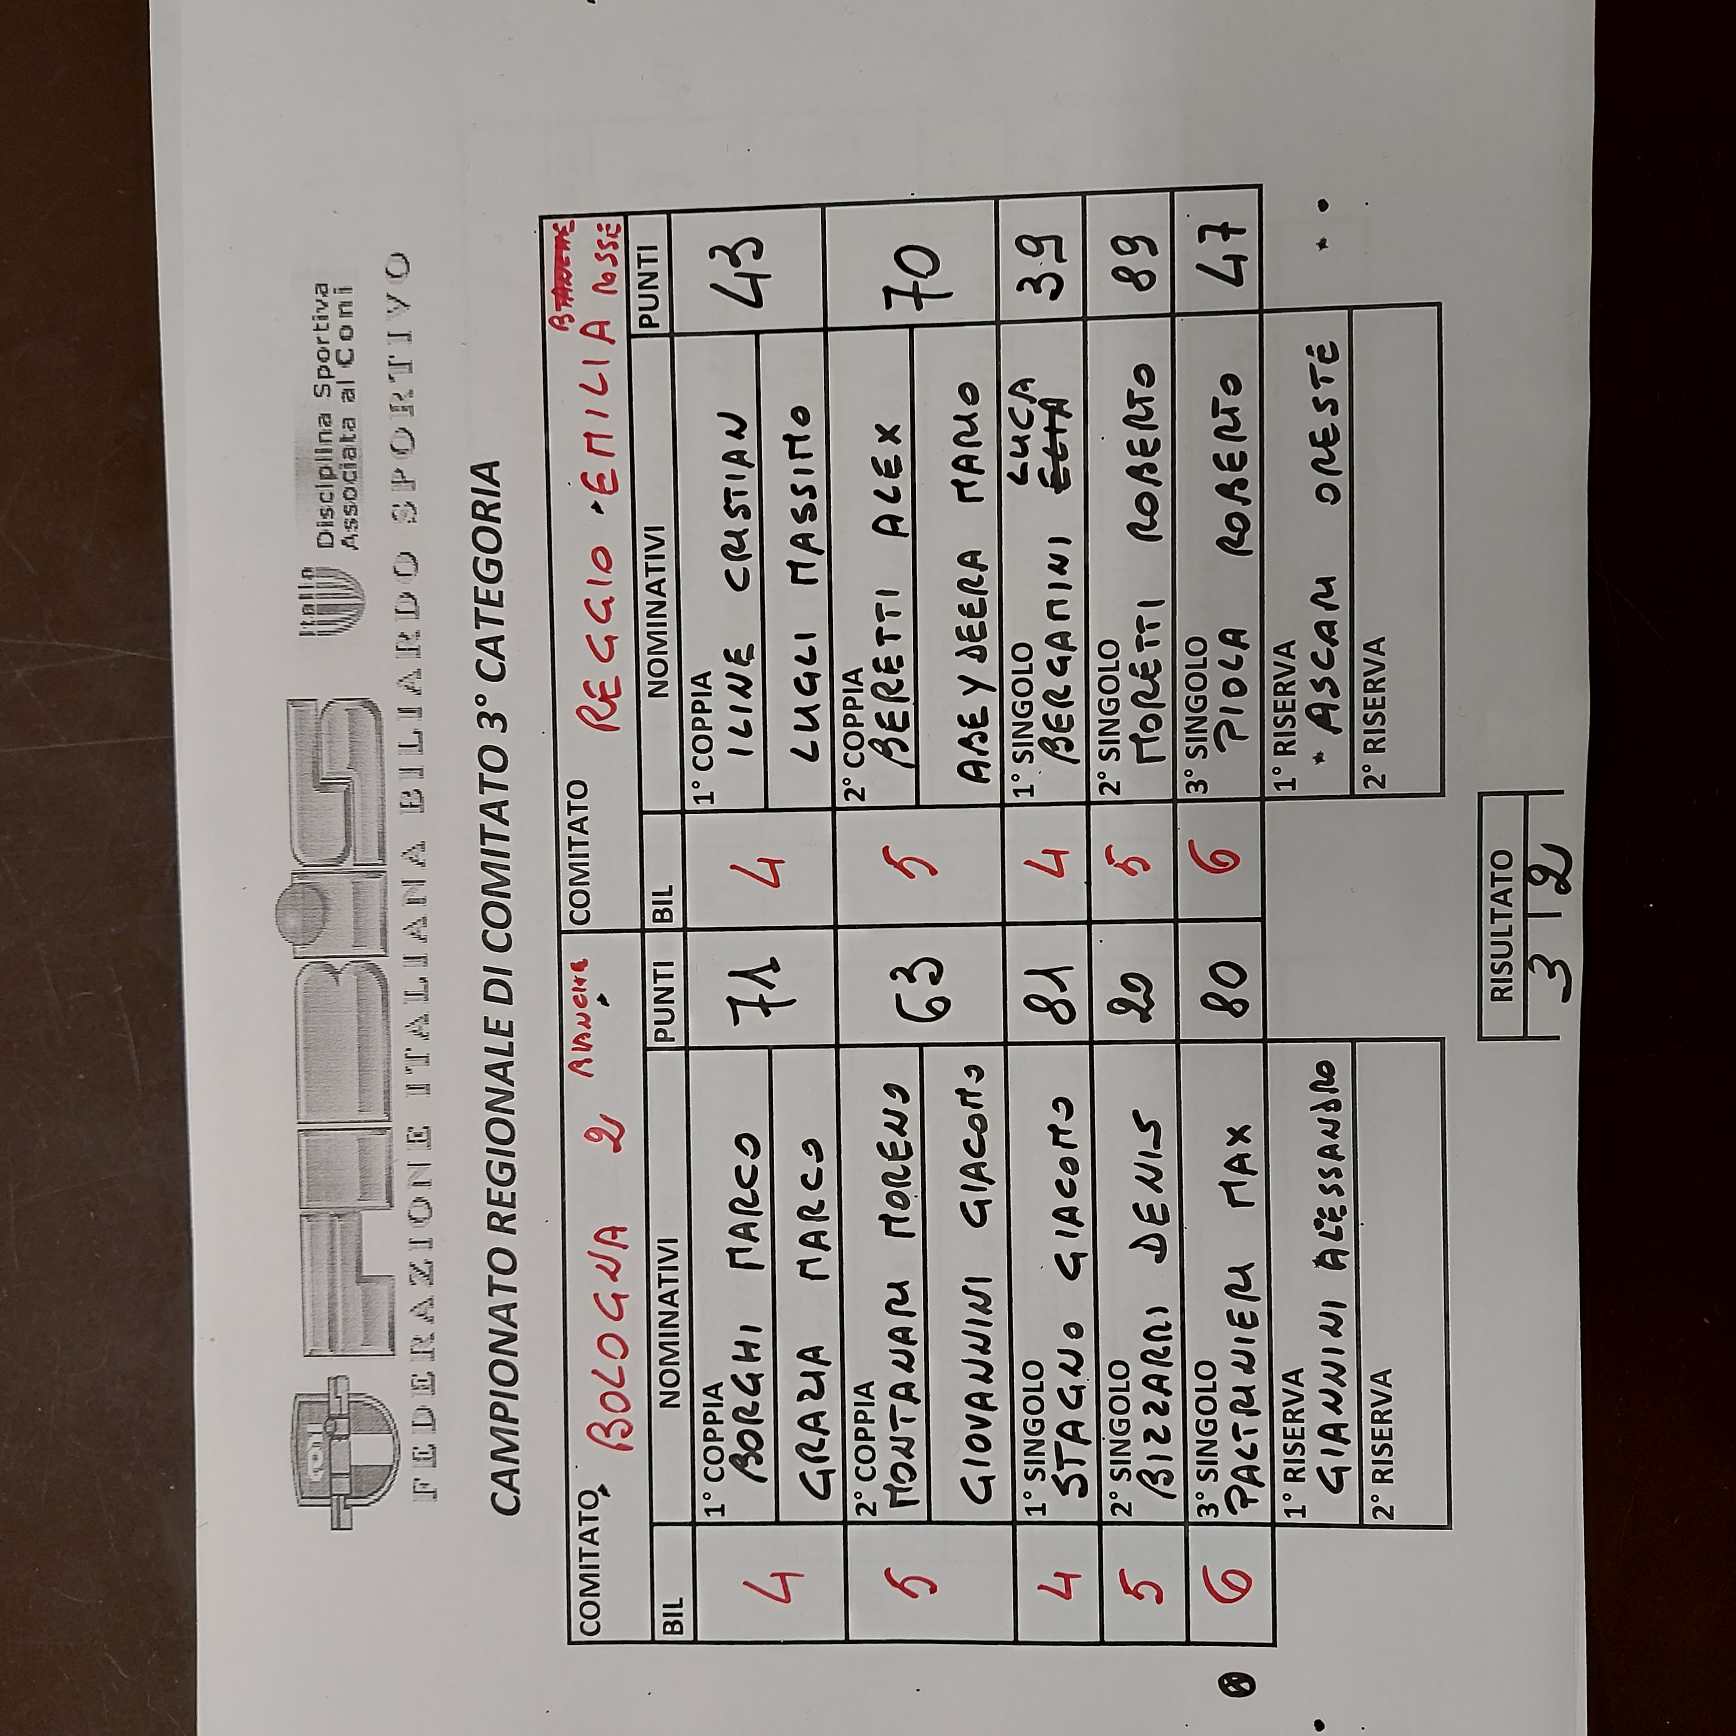 FIBiS
Italia
Disciplina Sportiva
Associata al Coni
FEDERAZIONE ITALIANA BILIARDO SPORTIVO
CAMPIONATO REGIONALE DI COMITATO 3° CATEGORIA
COMITATO BOLOGNA 2 BIANCHE COMITATO REGGIO-EMILIA ROSSE
BIL NOMINATIVI PUNTI BIL NOMINATIVI PUNTI
1° COPPIA 1° COPPIA
4 BORGHI MARCO 71 4 ILINE CRISTIAN 43
GRAZIA MARCO LUGLI MASSIMO
2° COPPIA 2° COPPIA
5 MONTANARI MORENO 63 5 BERETTI ALEX 70
GIOVANNINI GIACOMO ABEYDEERA MARIO
1° SINGOLO 1° SINGOLO LUCA
4 STAGNO GIACOMO 81 4 BERGAMINI ELIA 39
2° SINGOLO 2° SINGOLO
5 BIZZARRI DENIS 20 5 MORETTI ROBERTO 89
3° SINGOLO 3° SINGOLO
6 PALTRINIERI MAX 80 6 PIOLA ROBERTO 47
1° RISERVA 1° RISERVA
GIANNINI ALESSANDRO * ASCARI ORESTE
2° RISERVA 2° RISERVA
RISULTATO
3 | 2